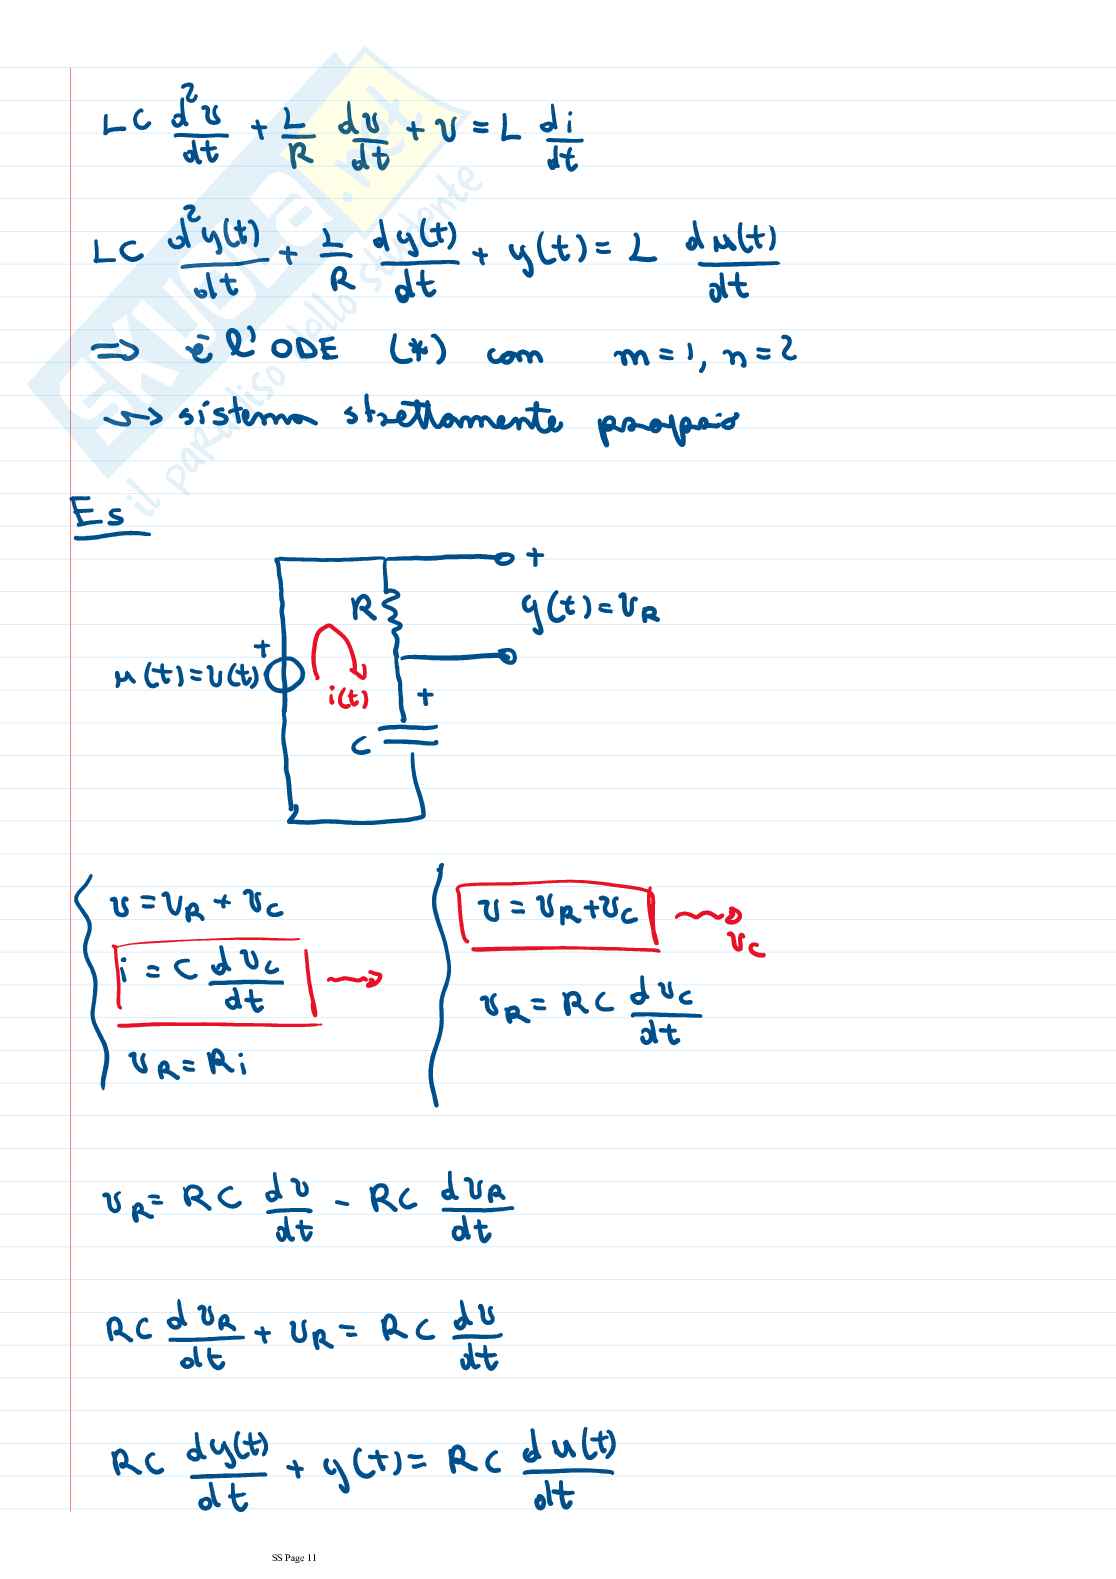 LC d²v/dt + L/R dv/dt + v = L di/dt
LC d²y(t)/dt + L/R dy(t)/dt + y(t) = L du(t)/dt
⇒ è l'ODE (*) con m = 1, n = 2
⇝ sistema strettamente proprio
Es
+
R
y(t) = v_R
+
u(t) = v(t)
i(t)
+
C
v = v_R + v_C
i = C dv_C/dt →
v_R = R i
v = v_R + v_C → v_C
v_R = RC dv_C/dt
v_R = RC dv/dt - RC dv_R/dt
RC dv_R/dt + v_R = RC dv/dt
RC dy(t)/dt + y(t) = RC du(t)/dt
SS Page 11
SKUOLA.net
il paradiso dello studente